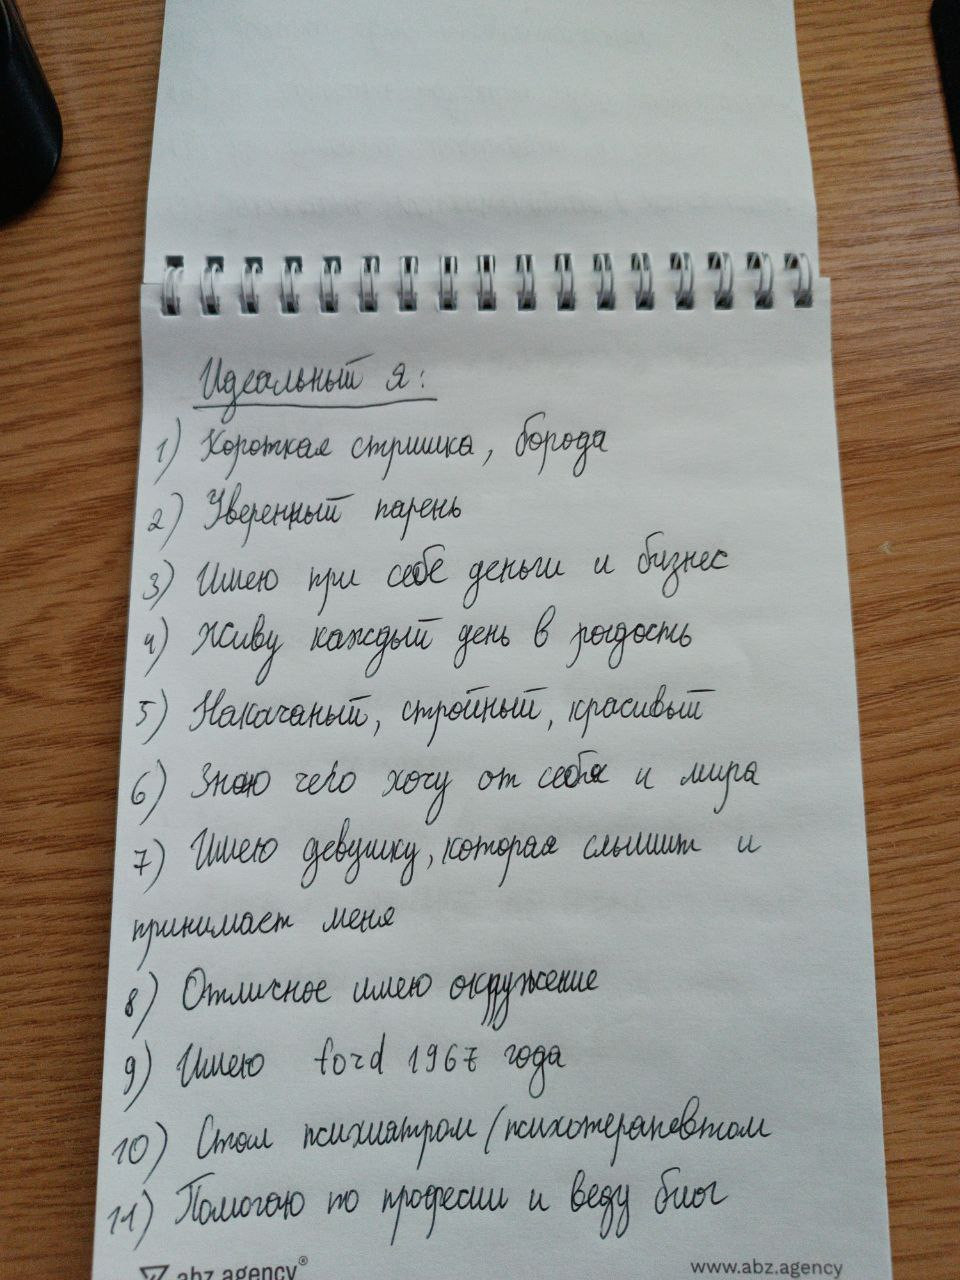 Идеальный я:
1) Короткая стришка, борода
2) Уверенный парень
3) Имею при себе деньги и бизнес
4) Живу каждый день в радость
5) Накачаный, стройный, красивый
6) Знаю чего хочу от себя и мира
7) Имею девушку, которая слышит и
принимает меня
8) Отличное имею окружение
9) Имею ford 1967 года
10) Стал психиатром/психотерапевтом
11) Помогаю по професии и веду блог
abz.agency®
www.abz.agency